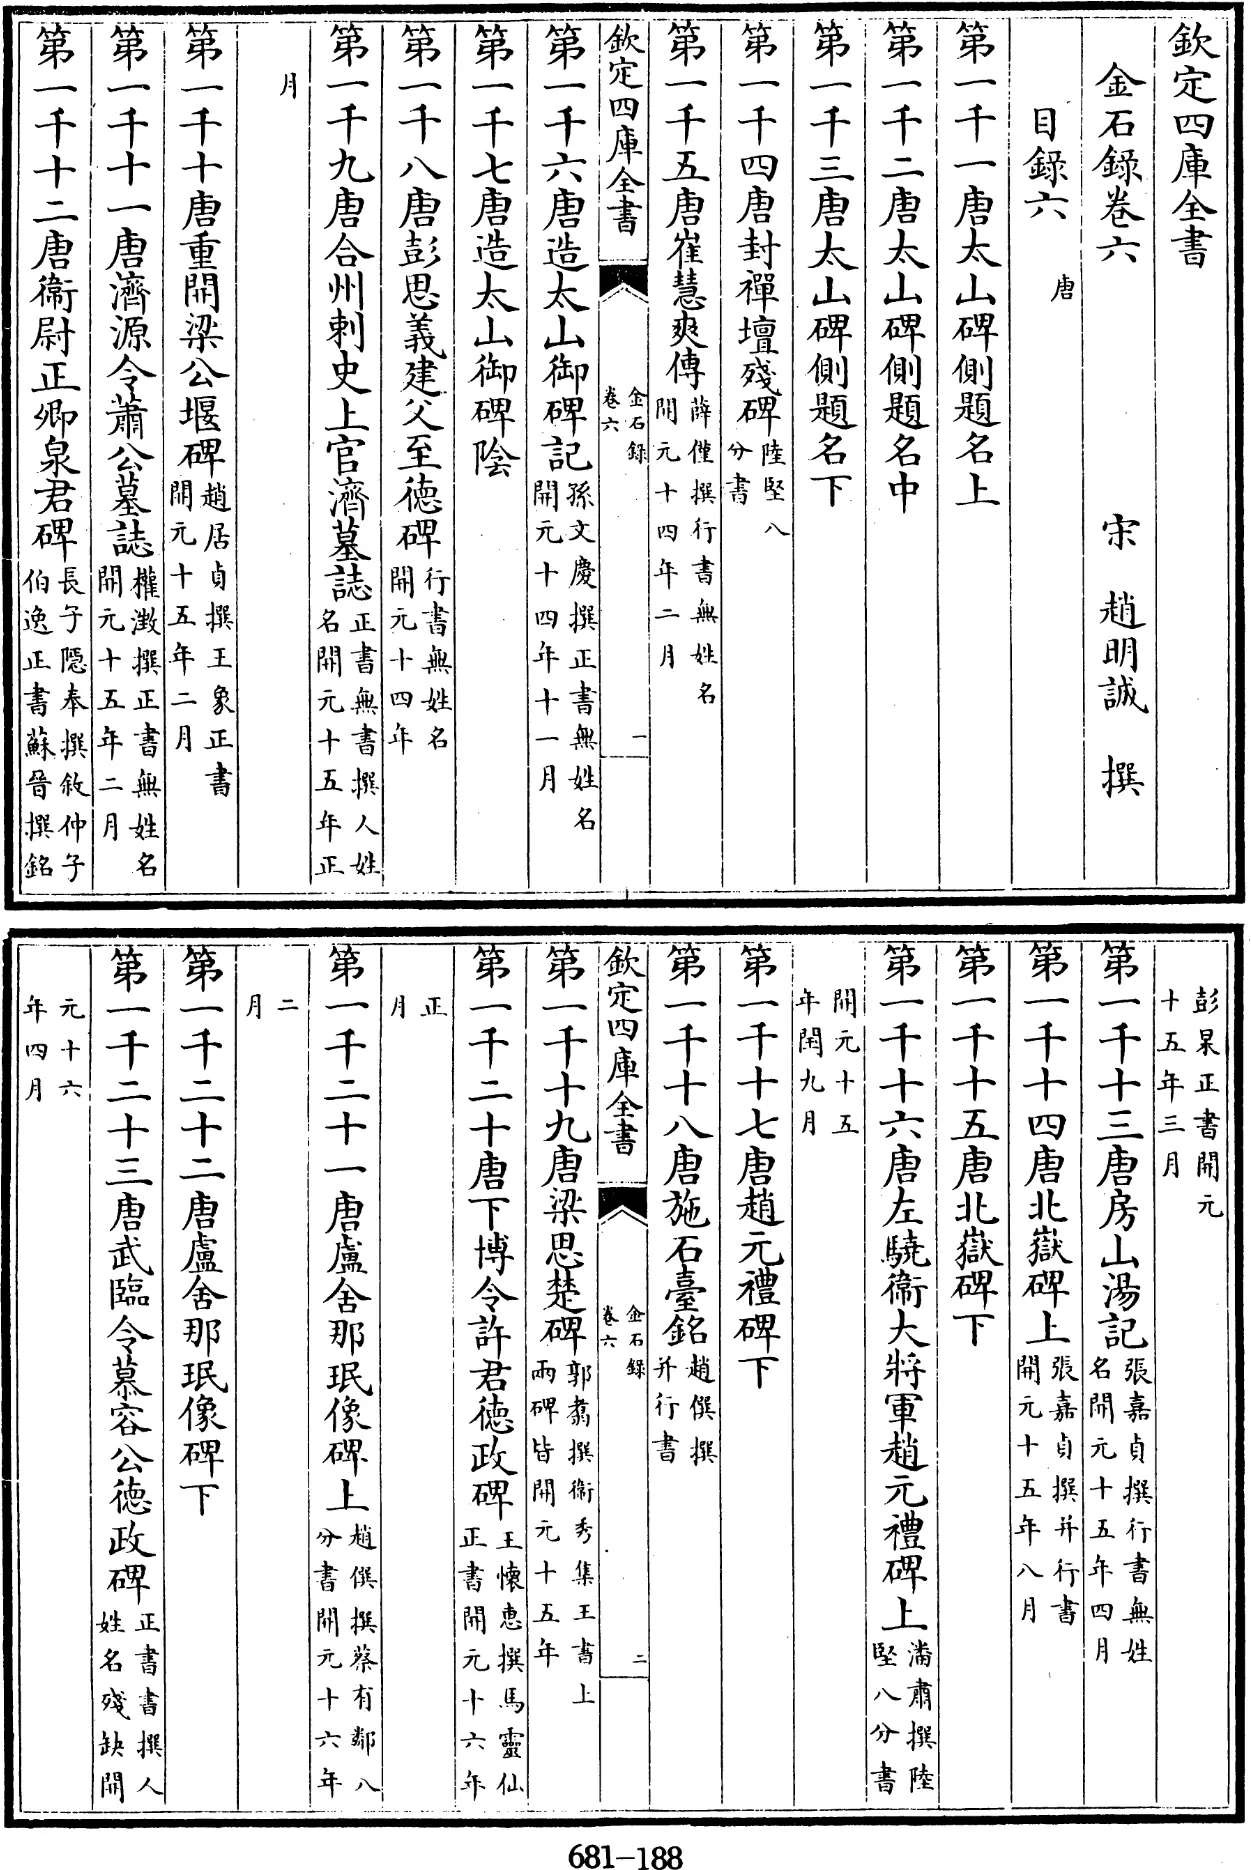 欽定四庫全書
金石錄卷六
宋　趙明誠　撰
目録六
唐
第一千一唐太山碑側題名上
第一千二唐太山碑側題名中
第一千三唐太山碑側題名下
第一千四唐封禪壇殘碑
陸堅八
分書
第一千五唐崔慧爽傳
薛僅撰行書無姓名
開元十四年二月
欽定四庫全書
金石録
卷六
一
第一千六唐造太山御碑記
孫文慶撰正書無姓名
開元十四年十一月
第一千七唐造太山御碑陰
第一千八唐彭思義建父至德碑
行書無姓名
開元十四年
第一千九唐合州刺史上官濟墓誌
正書無書撰人姓
名開元十五年正
月
第一千十唐重開梁公堰碑
趙居貞撰王象正書
開元十五年二月
第一千十一唐濟源令蕭公墓誌
權澂撰正書無姓名
開元十五年二月
第一千十二唐衞尉正卿泉君碑
長子隱奉撰敘仲子
伯逸正書蘇晉撰銘
彭杲正書開元
十五年三月
第一千十三唐房山湯記
張嘉貞撰行書無姓
名開元十五年四月
第一千十四唐北嶽碑上
張嘉貞撰并行書
開元十五年八月
第一千十五唐北嶽碑下
第一千十六唐左驍衞大將軍趙元禮碑上
潘肅撰陸
堅八分書
開元十五
年閏九月
第一千十七唐趙元禮碑下
第一千十八唐施石臺銘
趙僎撰
并行書
欽定四庫全書
金石録
卷六
二
第一千十九唐梁思楚碑
郭翥撰衞秀集王書上
兩碑皆開元十五年
第一千二十唐下博令許君德政碑
王懷惠撰馬靈仙
正書開元十六年
正
月
第一千二十一唐盧舍那珉像碑上
趙僎撰蔡有鄰八
分書開元十六年
二
月
第一千二十二唐盧舍那珉像碑下
第一千二十三唐武臨令慕容公德政碑
正書書撰人
姓名殘缺開
元十六
年四月
681-188